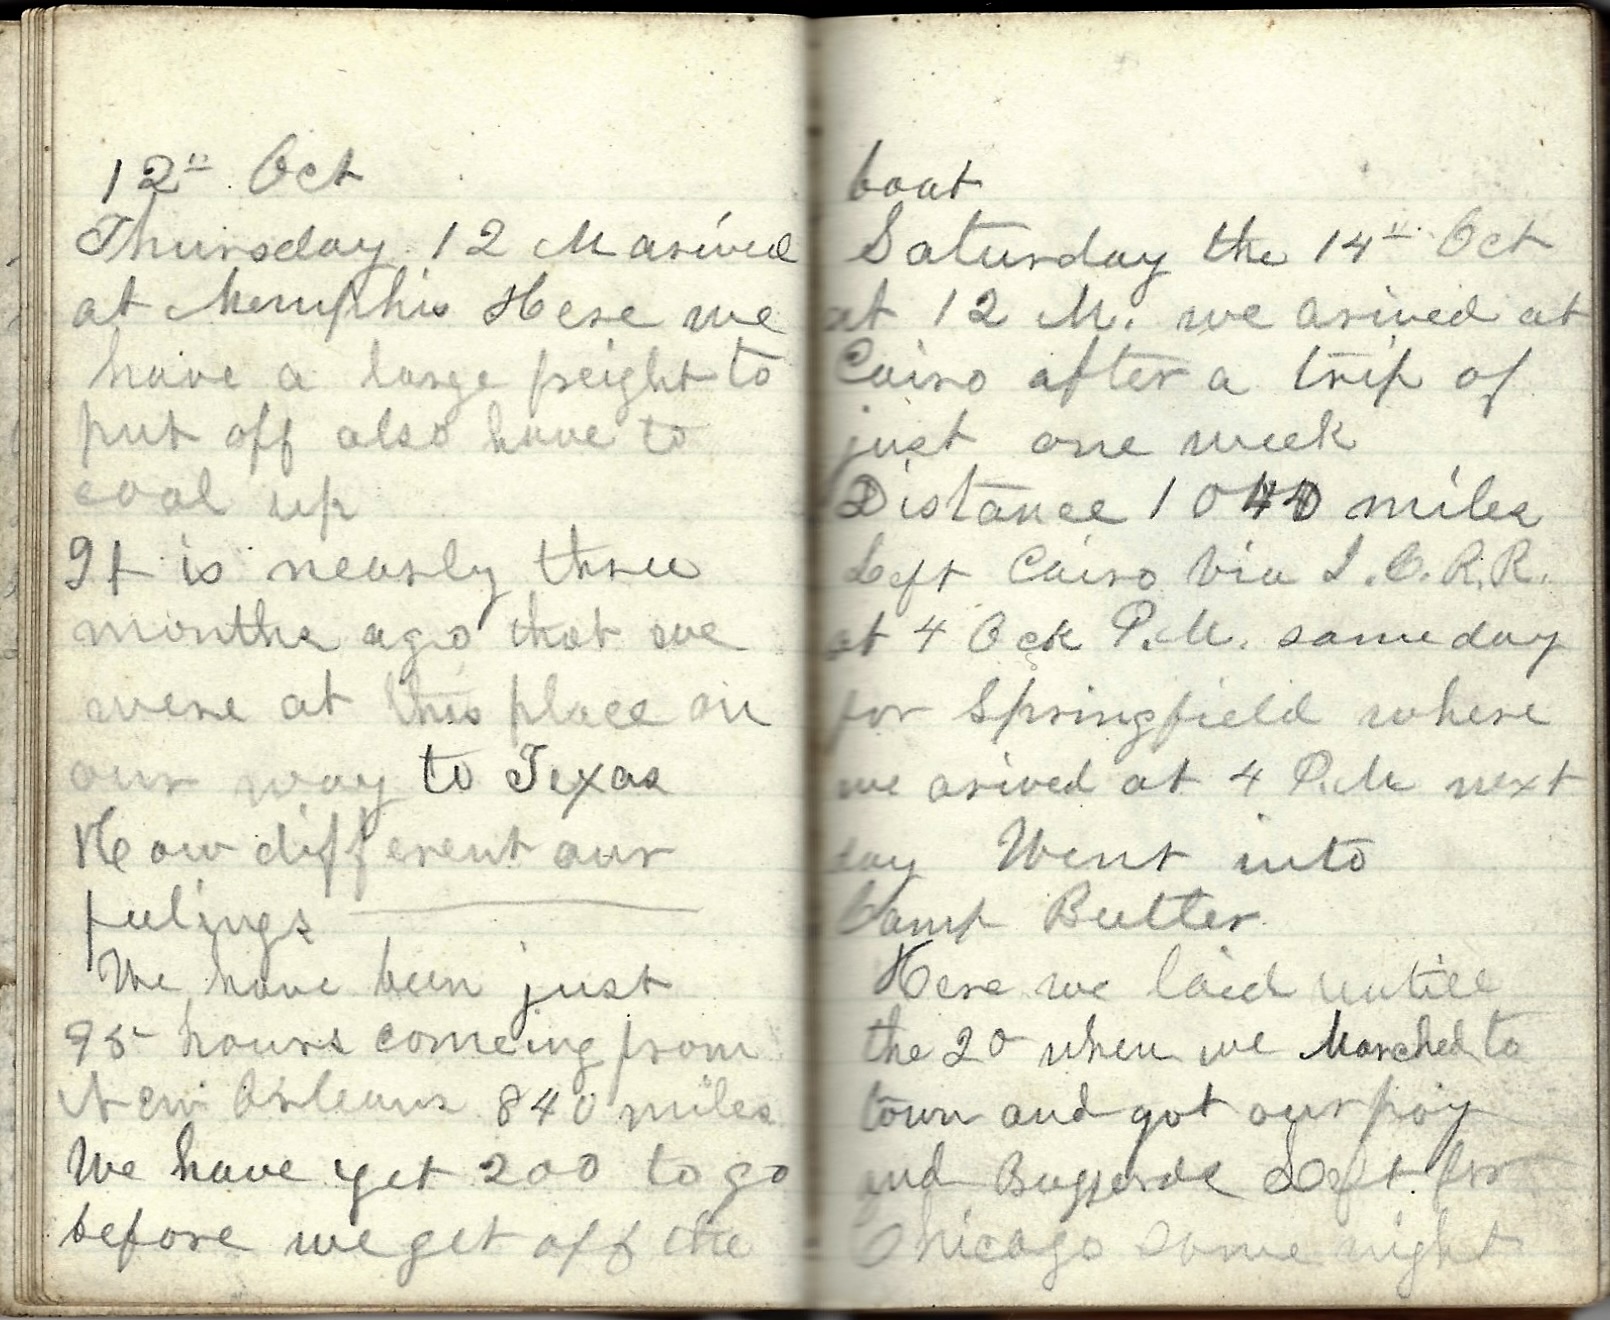 12" Oct
Thursday 12 M arived
at Memphis Here we
have a large freight to
put off also have to
coal up
It is nearly three
months ago that we
were at this place on
our way to Texas
How different our
feelings
We have been just
95 hours comeing from
New Orleans 840 miles
We have yet 200 to go
before we get off the
boat
Saturday the 14" Oct
at 12 M. we arived at
Cairo after a trip of
just one week
Distance 1040 miles
Left Cairo via I.C.R.R.
at 4 Ock P.M. same day
for Springfield where
we arived at 4 P.M next
day Went into
Camp Butler
Here we laid untill
the 20 when we Marched to
town and got our pay
and Left for
Chicago same night